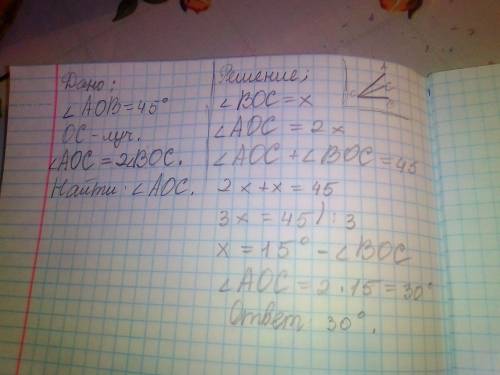 Дано:
∠AOB=45°
OC-луч.
∠AOC=2∠BOC.
Найти: ∠AOC.
Решение;
∠BOC=x
∠AOC=2x
∠AOC+∠BOC=45
2x+x=45
3x=45) :3
x=15° - ∠BOC
∠AOC=2·15=30°
Ответ: 30°.